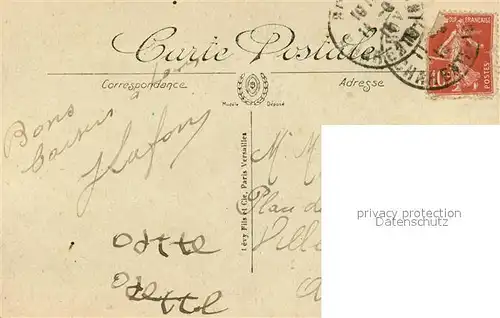 Carte Postale
Correspondance
Adresse
Modèle Déposé
Bons
baisers à tous
J Lafon
Odette
Odette
Lévy Fils et Cie, Paris Versailles
M. M
Plan de
Ville
privacy protection
Datenschutz
POSTES